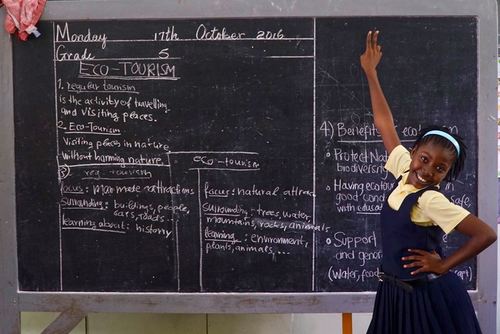 Monday 17th October 2016
Grade 5
ECO-TOURISM
1. regular tourism
is the activity of travelling
and visiting places.
2. Eco-Tourism
Visiting places in nature
without harming nature.
3) reg. tourism
focus: man made attractions
Surrounding: buildings, people,
cars, roads..
learning about: history
eco-tourism
focus: natural attrac
Surrounding: trees, water,
mountains, rocks, animals
learning: environment,
plants, animals, ...
4) Benefits of eco
Protect Nat
biodiversi
Having ecotou
good cond safe
with educat
Support
and gener
(Water, food